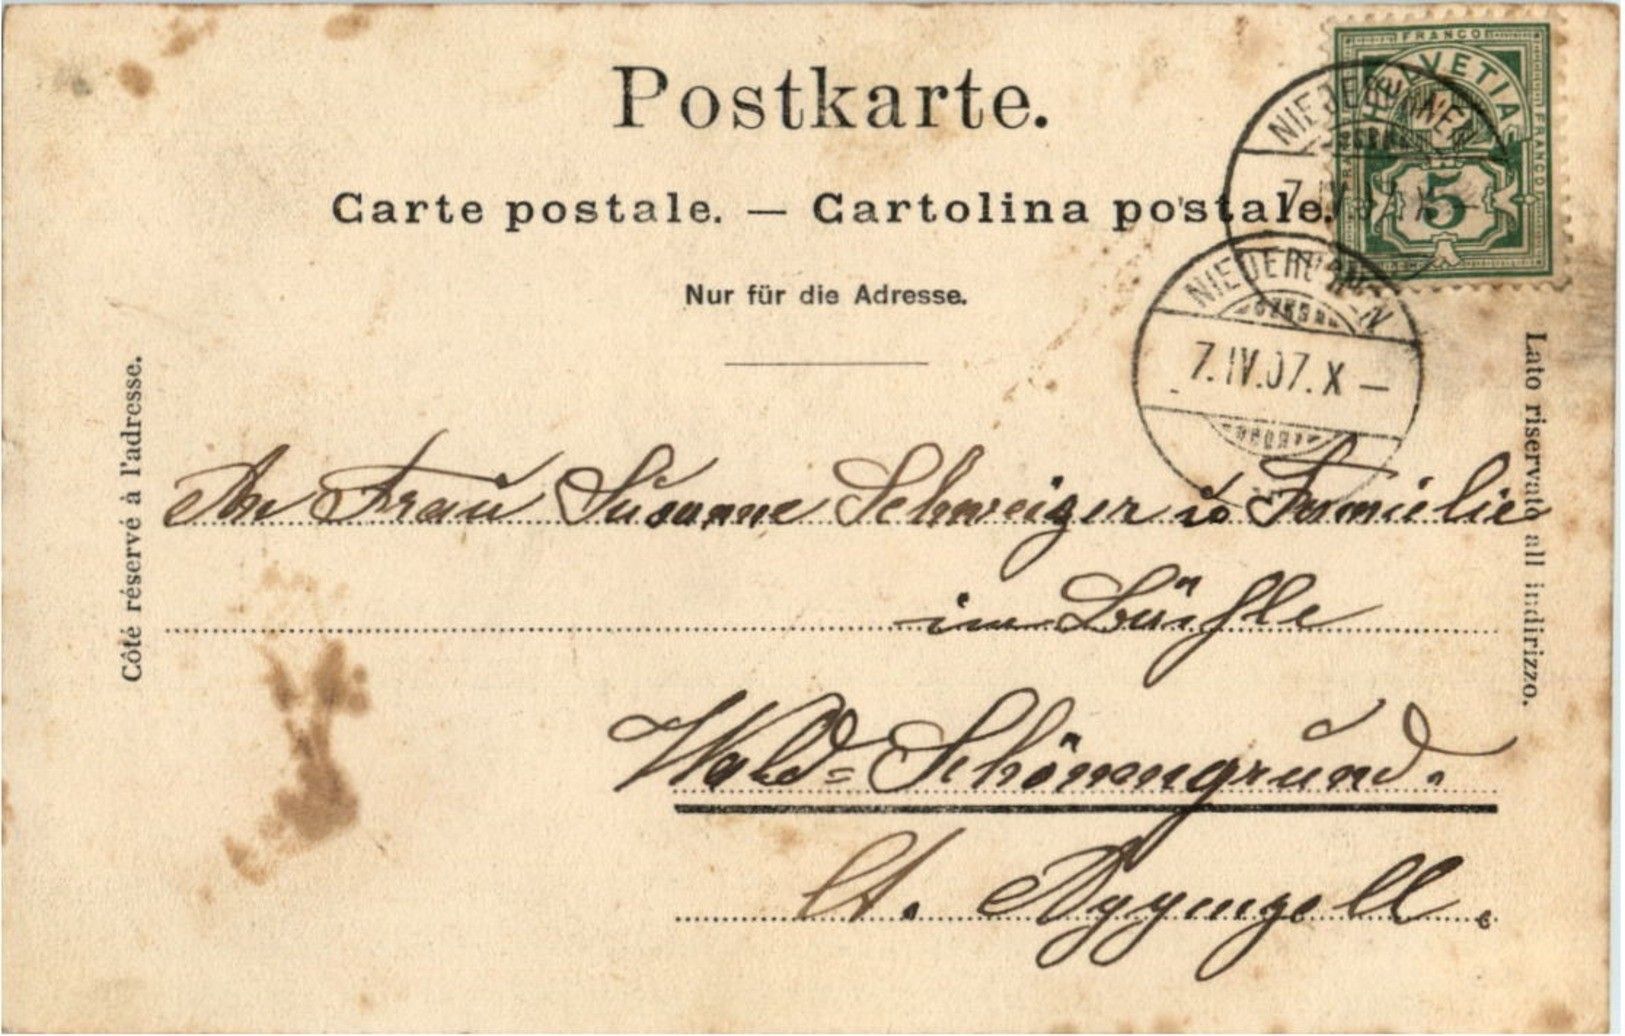 Postkarte.
Carte postale. — Cartolina postale.
Nur für die Adresse.
FRANCO
HELVETIA
FRANCO
5
NIEDERURNEN
7.IV.07.X–
NIEDERURNEN
7.IV.07.X–
Côté réservé à l'adresse.
Lato riservato all indirizzo.
An Frau Susanne Schweizer u. Familie
im
Wald=Schönengrund.
Ct. Appenzell.